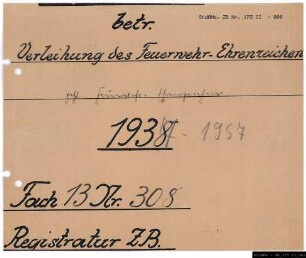 StdAMs. ZB Nr. 175 II / 000
betr.
Verleihung des Feuerwehr-Ehrenzeichen
1938 - 1957
Fach 13 Nr. 308
Registratur Z.B.